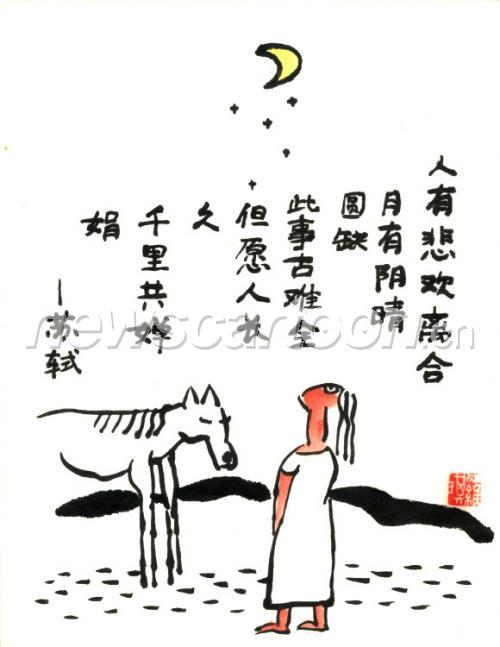 人有悲欢离合
月有阴晴
圆缺
此事古难全
但愿人长
久
千里共婵
娟
—苏轼
newscartoon.cn